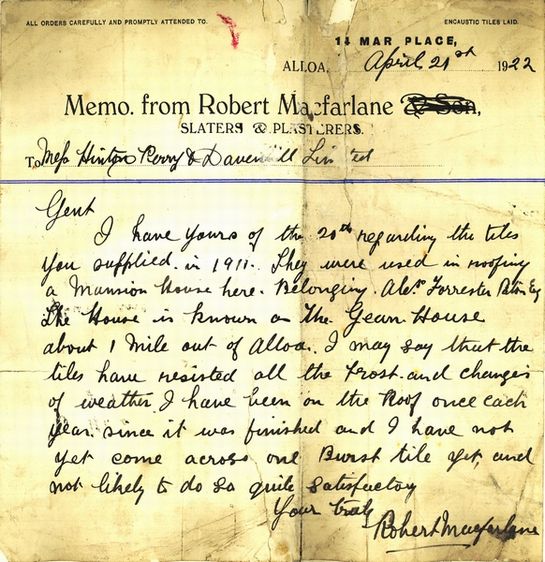 ALL ORDERS CAREFULLY AND PROMPTLY ATTENDED TO.
ENCAUSTIC TILES LAID.
14 MAR PLACE,
ALLOA, April 21st 1922
Memo. from Robert Macfarlane & Son,
SLATERS & PLASTERERS.
To Mess Hinton Perry & Davenhill Limited
Gent
I have yours of the 20th regarding the tiles
you supplied in 1911. They were used in roofing
a Mansion House here. Belonging. Alexr Forrester Paton Esq
The House is known as The Gean House
about 1 mile out of Alloa. I may say that the
tiles have resisted all the frost and changes
of weather I have been on the Roof once each
year since it was finished and I have not
yet come across one Burst tile yet, and
not likely to do so quite satisfactory
Your truly
Robert Macfarlane